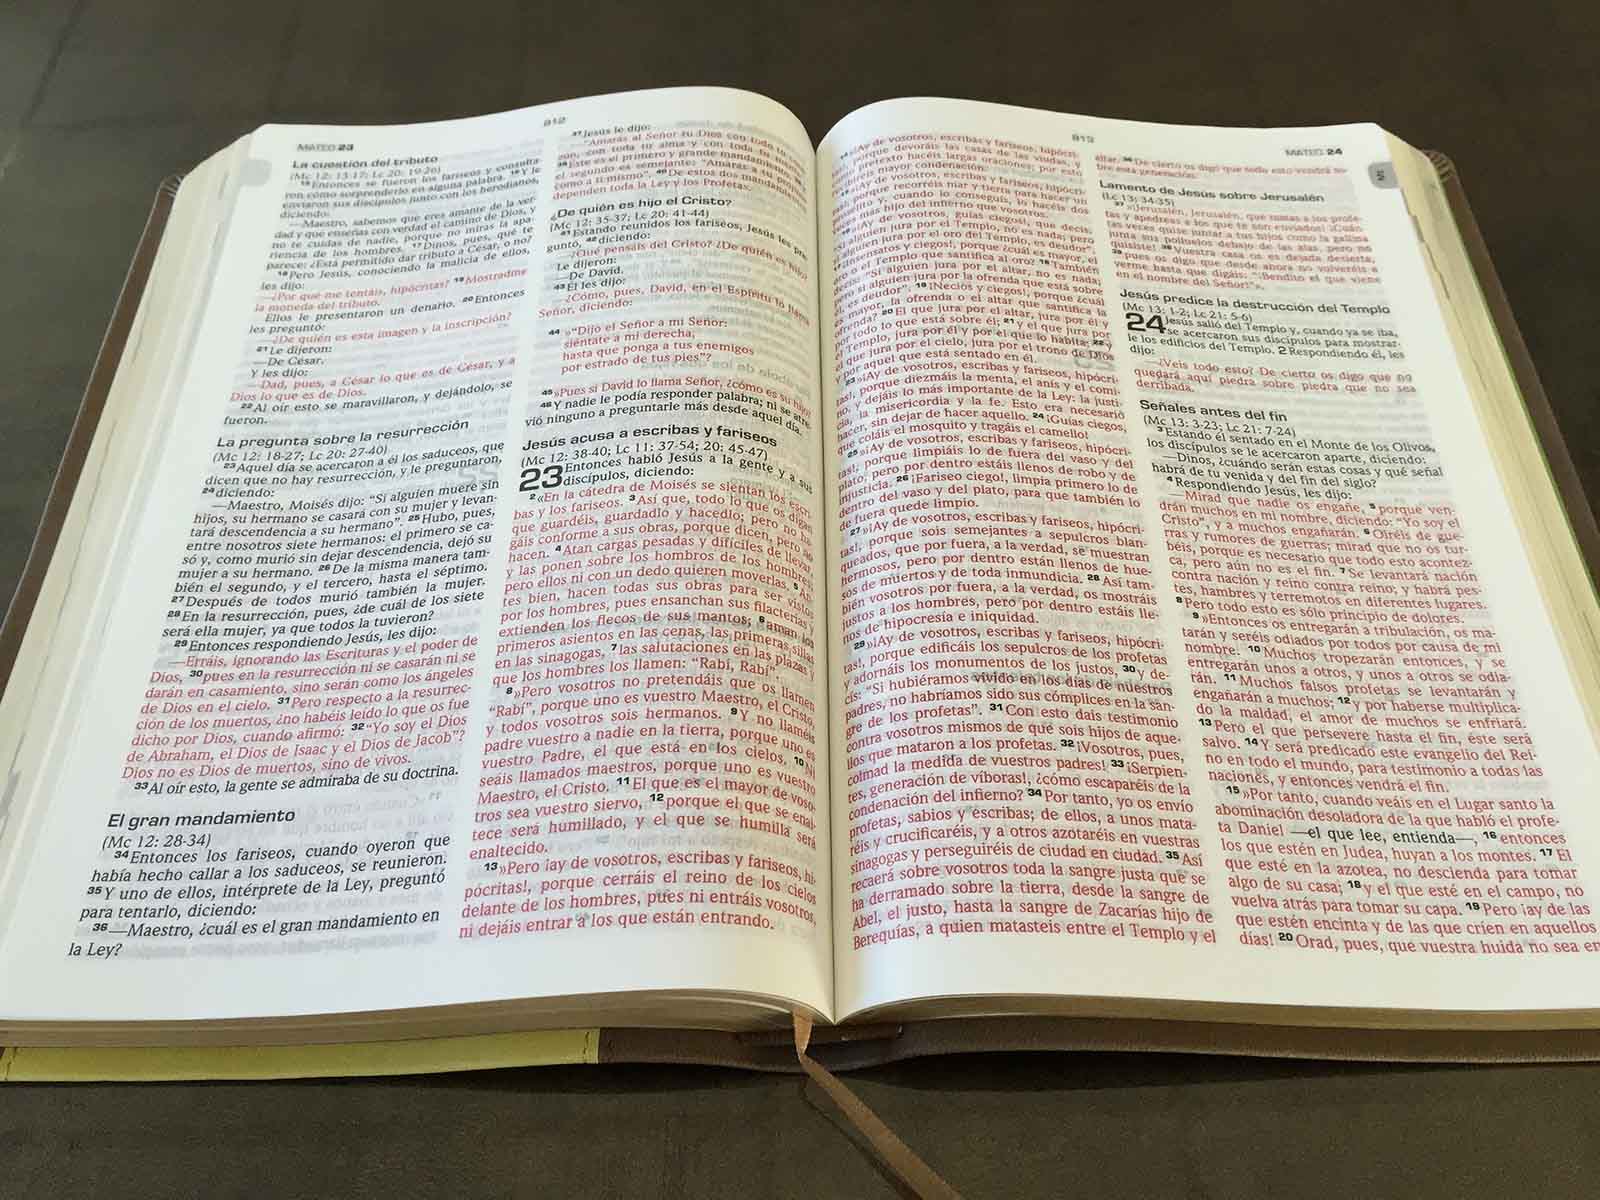 MATEO 23
812
La cuestión del tributo
(Mc 12: 13-17; Lc 20: 19-26)
15 Entonces se fueron los fariseos y consulta-
ron cómo sorprenderlo en alguna palabra. 16 Y le
enviaron sus discípulos junto con los herodianos,
diciendo:
—Maestro, sabemos que eres amante de la ver-
dad y que enseñas con verdad el camino de Dios, y
no te cuidas de nadie, porque no miras la apa-
riencia de los hombres. 17 Dinos, pues, qué te
parece: ¿Está permitido dar tributo a César, o no?
18 Pero Jesús, conociendo la malicia de ellos,
les dijo:
—¿Por qué me tentáis, hipócritas? 19 Mostradme
la moneda del tributo.
Ellos le presentaron un denario. 20 Entonces
les preguntó:
—¿De quién es esta imagen y la inscripción?
21 Le dijeron:
—De César.
Y les dijo:
—Dad, pues, a César lo que es de César, y a
Dios lo que es de Dios.
22 Al oír esto se maravillaron, y dejándolo, se
fueron.
La pregunta sobre la resurrección
(Mc 12: 18-27; Lc 20: 27-40)
23 Aquel día se acercaron a él los saduceos, que
dicen que no hay resurrección, y le preguntaron,
24 diciendo:
—Maestro, Moisés dijo: “Si alguien muere sin
hijos, su hermano se casará con su mujer y levan-
tará descendencia a su hermano”. 25 Hubo, pues,
entre nosotros siete hermanos: el primero se ca-
só y, como murió sin dejar descendencia, dejó su
mujer a su hermano. 26 De la misma manera tam-
bién el segundo, y el tercero, hasta el séptimo.
27 Después de todos murió también la mujer.
28 En la resurrección, pues, ¿de cuál de los siete
será ella mujer, ya que todos la tuvieron?
29 Entonces respondiendo Jesús, les dijo:
—Erráis, ignorando las Escrituras y el poder de
Dios, 30 pues en la resurrección ni se casarán ni se
darán en casamiento, sino serán como los ángeles
de Dios en el cielo. 31 Pero respecto a la resurrec-
ción de los muertos, ¿no habéis leído lo que os fue
dicho por Dios, cuando afirmó: 32 “Yo soy el Dios
de Abraham, el Dios de Isaac y el Dios de Jacob”?
Dios no es Dios de muertos, sino de vivos.
33 Al oír esto, la gente se admiraba de su doctrina.
El gran mandamiento
(Mc 12: 28-34)
34 Entonces los fariseos, cuando oyeron que
había hecho callar a los saduceos, se reunieron.
35 Y uno de ellos, intérprete de la Ley, preguntó
para tentarlo, diciendo:
36 —Maestro, ¿cuál es el gran mandamiento en
la Ley?
37 Jesús le dijo:
—“Amarás al Señor tu Dios con todo tu cora-
zón, con toda tu alma y con toda tu mente”.
38 Éste es el primero y grande mandamiento. 39 Y
el segundo es semejante: “Amarás a tu prójimo
como a ti mismo”. 40 De estos dos mandamientos
dependen toda la Ley y los Profetas.
¿De quién es hijo el Cristo?
(Mc 12: 35-37; Lc 20: 41-44)
41 Estando reunidos los fariseos, Jesús les pre-
guntó, 42 diciendo:
—¿Qué pensáis del Cristo? ¿De quién es hijo?
Le dijeron:
—De David.
43 Él les dijo:
—¿Cómo, pues, David, en el Espíritu lo llama
Señor, diciendo:
44 »“Dijo el Señor a mi Señor:
siéntate a mi derecha,
hasta que ponga a tus enemigos
por estrado de tus pies”?
45 »Pues si David lo llama Señor, ¿cómo es su hijo?
46 Y nadie le podía responder palabra; ni se atre-
vió ninguno a preguntarle más desde aquel día.
Jesús acusa a escribas y fariseos
(Mc 12: 38-40; Lc 11: 37-54; 20: 45-47)
23 Entonces habló Jesús a la gente y a sus
discípulos, diciendo:
2 «En la cátedra de Moisés se sientan los escri-
bas y los fariseos. 3 Así que, todo lo que os digan
que guardéis, guardadlo y hacedlo; pero no ha-
gáis conforme a sus obras, porque dicen, pero no
hacen. 4 Atan cargas pesadas y difíciles de llevar,
y las ponen sobre los hombros de los hombres;
pero ellos ni con un dedo quieren moverlas. 5 An-
tes bien, hacen todas sus obras para ser vistos
por los hombres, pues ensanchan sus filacterias y
extienden los flecos de sus mantos; 6 aman los
primeros asientos en las cenas, las primeras sillas
en las sinagogas, 7 las salutaciones en las plazas y
que los hombres los llamen: “Rabí, Rabí”.
8 »Pero vosotros no pretendáis que os llamen
“Rabí”, porque uno es vuestro Maestro, el Cristo,
y todos vosotros sois hermanos. 9 Y no llaméis
padre vuestro a nadie en la tierra, porque uno es
vuestro Padre, el que está en los cielos. 10 Ni
seáis llamados maestros, porque uno es vuestro
Maestro, el Cristo. 11 El que es el mayor de voso-
tros sea vuestro siervo, 12 porque el que se enal-
tece será humillado, y el que se humilla será
enaltecido.
13 »Pero ¡ay de vosotros, escribas y fariseos, hi-
pócritas!, porque cerráis el reino de los cielos
delante de los hombres, pues ni entráis vosotros,
ni dejáis entrar a los que están entrando.
813
MATEO 24
14 »¡Ay de vosotros, escribas y fariseos, hipócri-
tas!, porque devoráis las casas de las viudas, y
como pretexto hacéis largas oraciones; por esto
recibiréis mayor condenación.
15 »¡Ay de vosotros, escribas y fariseos, hipócri-
tas!, porque recorréis mar y tierra para hacer un
prosélito y, cuando lo conseguís, lo hacéis dos
veces más hijo del infierno que vosotros.
16 »¡Ay de vosotros, guías ciegos!, que decís:
“Si alguien jura por el Templo, no es nada; pero
si alguien jura por el oro del Templo, es deudor”.
17 ¡Insensatos y ciegos!, porque ¿cuál es mayor, el
oro o el Templo que santifica al oro? 18 También
decís: “Si alguien jura por el altar, no es nada;
pero si alguien jura por la ofrenda que está sobre
él, es deudor”. 19 ¡Necios y ciegos!, porque ¿cuál
es mayor, la ofrenda o el altar que santifica la
ofrenda? 20 El que jura por el altar, jura por él y
por todo lo que está sobre él; 21 y el que jura por
el Templo, jura por él y por el que lo habita; 22 y
el que jura por el cielo, jura por el trono de Dios
y por aquel que está sentado en él.
23 »¡Ay de vosotros, escribas y fariseos, hipócri-
tas!, porque diezmáis la menta, el anís y el comi-
no, y dejáis lo más importante de la Ley: la justi-
cia, la misericordia y la fe. Esto era necesario
hacer, sin dejar de hacer aquello. 24 ¡Guías ciegos,
que coláis el mosquito y tragáis el camello!
25 »¡Ay de vosotros, escribas y fariseos, hipócri-
tas!, porque limpiáis lo de fuera del vaso y del
plato, pero por dentro estáis llenos de robo y de
injusticia. 26 ¡Fariseo ciego!, limpia primero lo de
dentro del vaso y del plato, para que también lo
de fuera quede limpio.
27 »¡Ay de vosotros, escribas y fariseos, hipócri-
tas!, porque sois semejantes a sepulcros blan-
queados, que por fuera, a la verdad, se muestran
hermosos, pero por dentro están llenos de hue-
sos de muertos y de toda inmundicia. 28 Así tam-
bién vosotros por fuera, a la verdad, os mostráis
justos a los hombres, pero por dentro estáis lle-
nos de hipocresía e iniquidad.
29 »¡Ay de vosotros, escribas y fariseos, hipócri-
tas!, porque edificáis los sepulcros de los profetas
y adornáis los monumentos de los justos, 30 y de-
cís: “Si hubiéramos vivido en los días de nuestros
padres, no habríamos sido sus cómplices en la san-
gre de los profetas”. 31 Con esto dais testimonio
contra vosotros mismos de que sois hijos de aque-
llos que mataron a los profetas. 32 ¡Vosotros, pues,
colmad la medida de vuestros padres! 33 ¡Serpien-
tes, generación de víboras!, ¿cómo escaparéis de la
condenación del infierno? 34 Por tanto, yo os envío
profetas, sabios y escribas; de ellos, a unos mata-
réis y crucificaréis, y a otros azotaréis en vuestras
sinagogas y perseguiréis de ciudad en ciudad. 35 Así
recaerá sobre vosotros toda la sangre justa que se
ha derramado sobre la tierra, desde la sangre de
Abel, el justo, hasta la sangre de Zacarías hijo de
Berequías, a quien matasteis entre el Templo y el
altar. 36 De cierto os digo que todo esto vendrá so-
bre esta generación.
Lamento de Jesús sobre Jerusalén
(Lc 13: 34-35)
37 »¡Jerusalén, Jerusalén, que matas a los profe-
tas y apedreas a los que te son enviados! ¡Cuán-
tas veces quise juntar a tus hijos como la gallina
junta sus polluelos debajo de las alas, pero no
quisiste! 38 Vuestra casa os es dejada desierta,
39 pues os digo que desde ahora no volveréis a
verme hasta que digáis: “¡Bendito el que viene
en el nombre del Señor!”».
Jesús predice la destrucción del Templo
(Mc 13: 1-2; Lc 21: 5-6)
24 Jesús salió del Templo y, cuando ya se iba,
se acercaron sus discípulos para mostrar-
le los edificios del Templo. 2 Respondiendo él, les
dijo:
—¿Veis todo esto? De cierto os digo que no
quedará aquí piedra sobre piedra que no sea
derribada.
Señales antes del fin
(Mc 13: 3-23; Lc 21: 7-24)
3 Estando él sentado en el Monte de los Olivos,
los discípulos se le acercaron aparte, diciendo:
—Dinos, ¿cuándo serán estas cosas y qué señal
habrá de tu venida y del fin del siglo?
4 Respondiendo Jesús, les dijo:
—Mirad que nadie os engañe, 5 porque ven-
drán muchos en mi nombre, diciendo: “Yo soy el
Cristo”, y a muchos engañarán. 6 Oiréis de gue-
rras y rumores de guerras; mirad que no os tur-
béis, porque es necesario que todo esto acontez-
ca, pero aún no es el fin. 7 Se levantará nación
contra nación y reino contra reino; y habrá pes-
tes, hambres y terremotos en diferentes lugares.
8 Pero todo esto es sólo principio de dolores.
9 »Entonces os entregarán a tribulación, os ma-
tarán y seréis odiados por todos por causa de mi
nombre. 10 Muchos tropezarán entonces, y se
entregarán unos a otros, y unos a otros se odia-
rán. 11 Muchos falsos profetas se levantarán y
engañarán a muchos; 12 y por haberse multiplica-
do la maldad, el amor de muchos se enfriará.
13 Pero el que persevere hasta el fin, éste será
salvo. 14 Y será predicado este evangelio del Rei-
no en todo el mundo, para testimonio a todas las
naciones, y entonces vendrá el fin.
15 »Por tanto, cuando veáis en el Lugar santo la
abominación desoladora de la que habló el profe-
ta Daniel —el que lee, entienda—, 16 entonces
los que estén en Judea, huyan a los montes. 17 El
que esté en la azotea, no descienda para tomar
algo de su casa; 18 y el que esté en el campo, no
vuelva atrás para tomar su capa. 19 Pero ¡ay de las
que estén encinta y de las que críen en aquellos
días! 20 Orad, pues, que vuestra huida no sea en